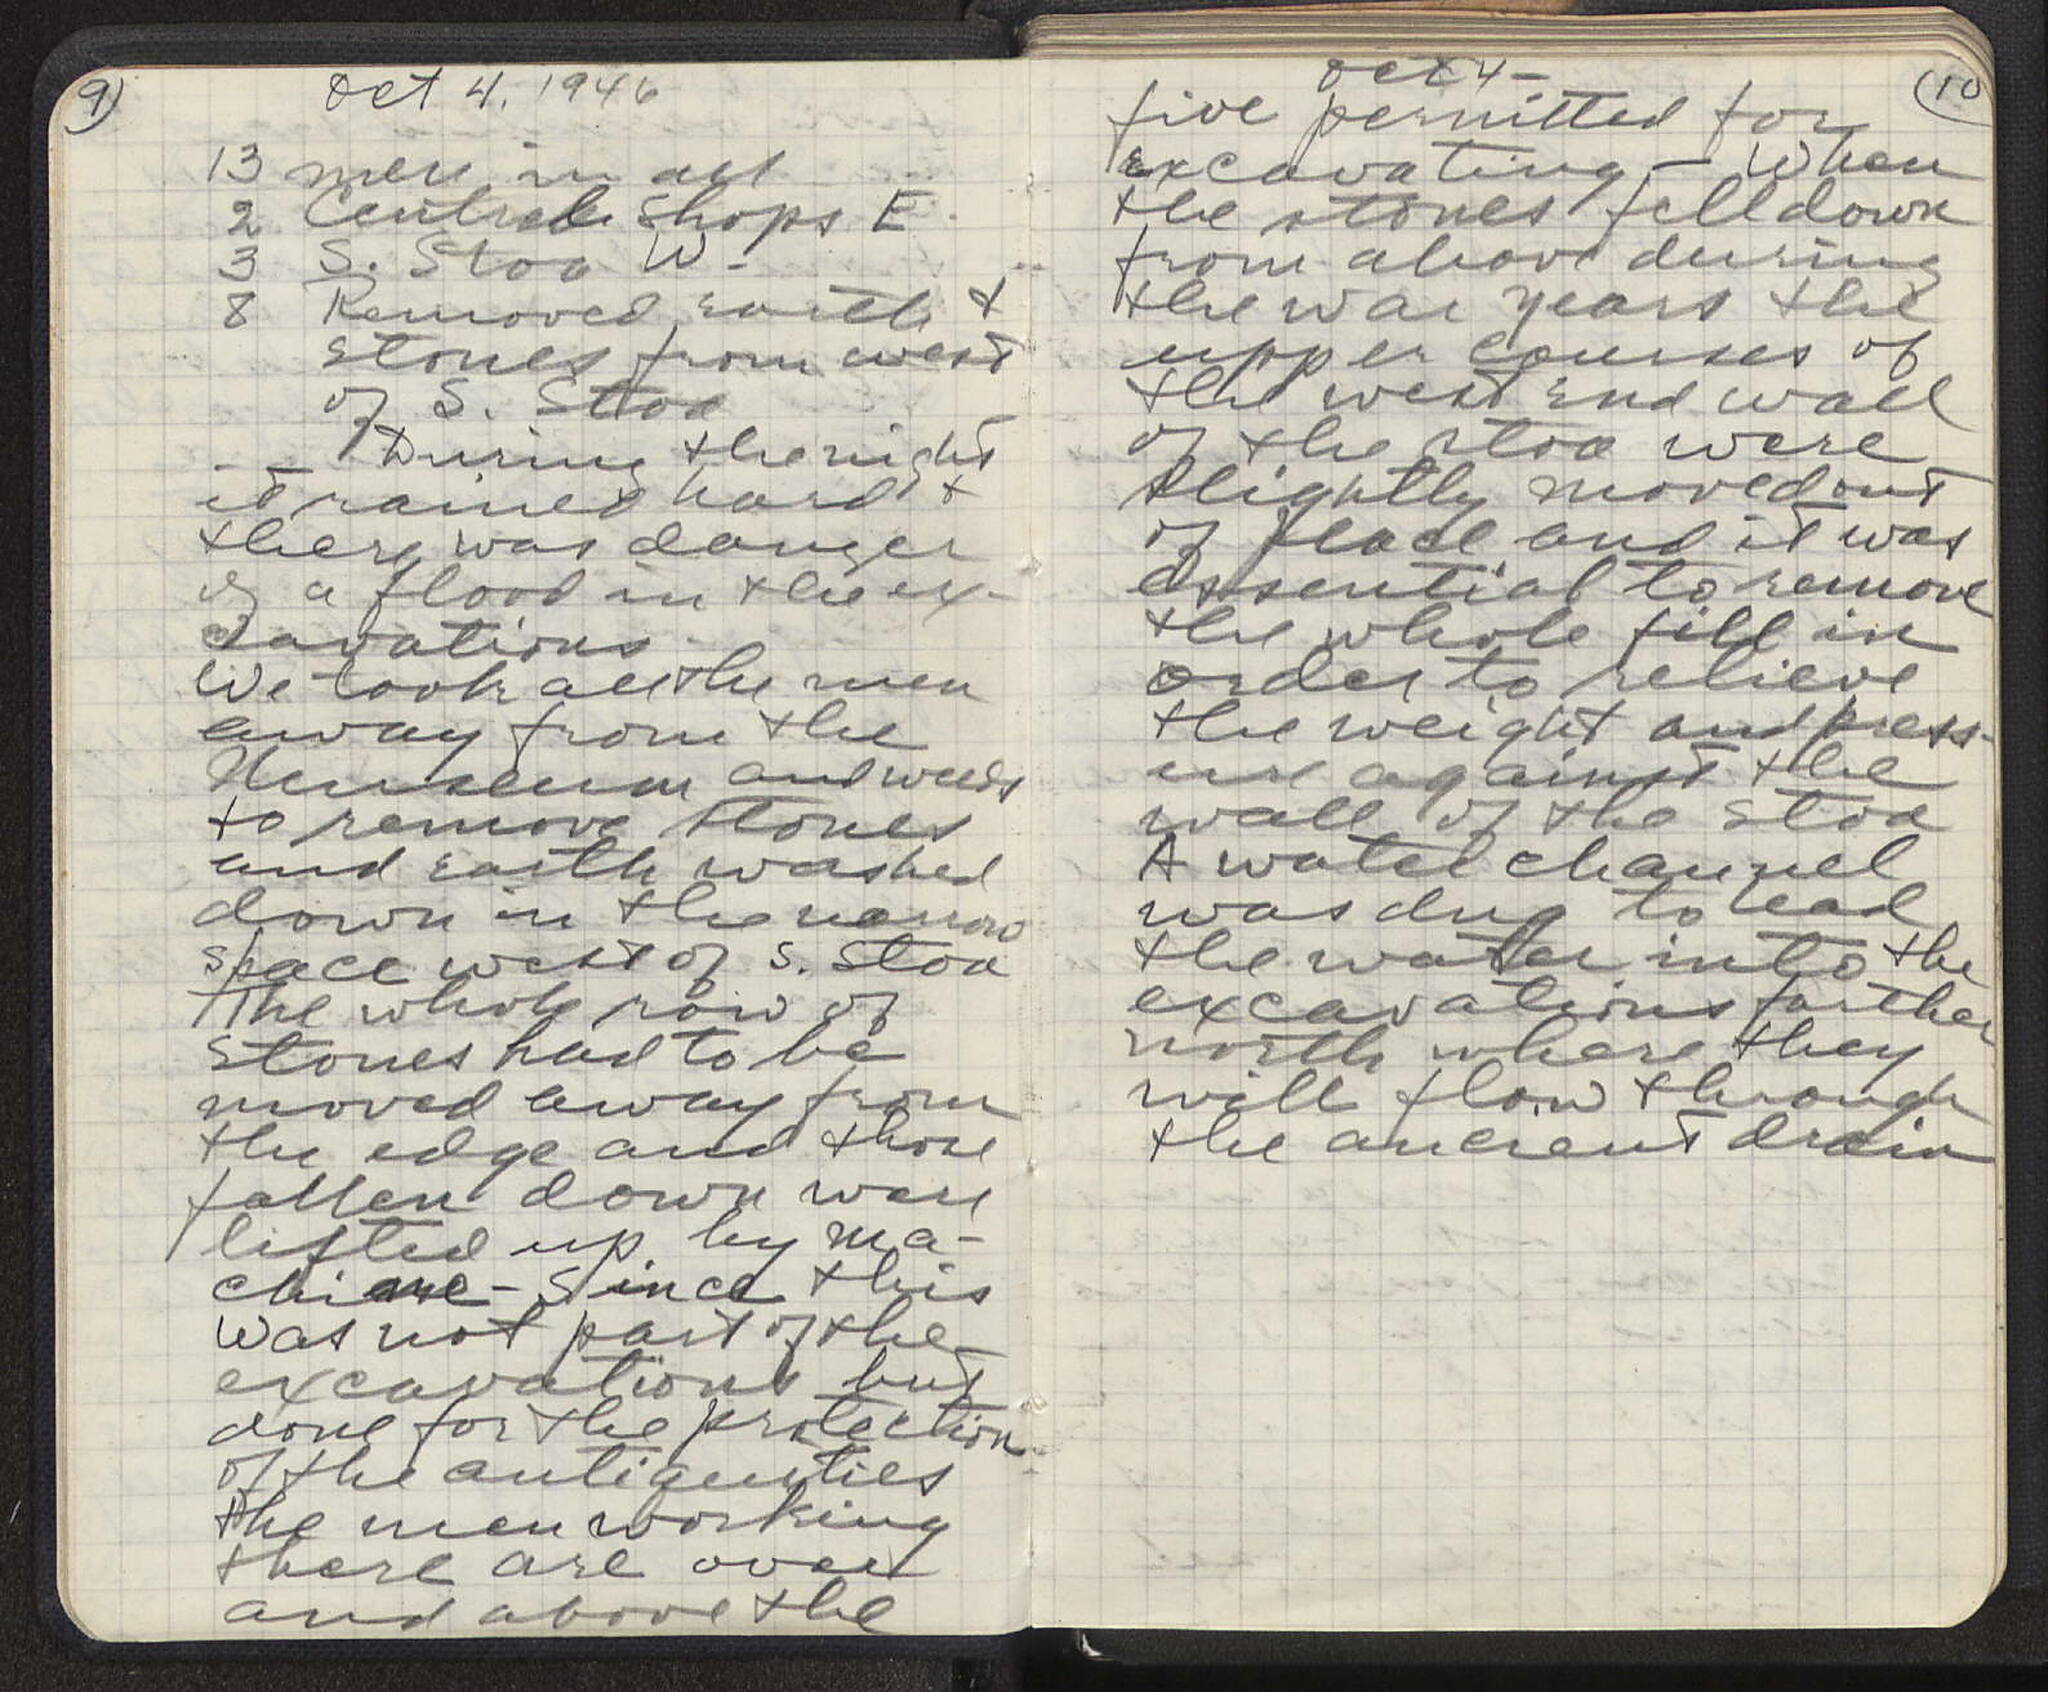 9)
Oct 4, 1946
13 men in all
2 Central Shops E.
3 S. Stoa W -
8 Removed earth +
stones from west
of S. Stoa
During the night
it rained hard +
there was danger
of a flood in the ex-
cavations.
We took all the men
away from the
Museum and weeds
to remove stones
and earth washed
down in the narrow
space west of S. Stoa
The whole row of
stones had to be
moved away from
the edge and those
fallen down were
lifted up by ma-
chine - Since this
was not part of the
excavations but
done for the protection
of the antiquities
the men working
there are over
and above the
(10
Oct 4 -
five permitted for
excavating - When
the stones fell down
from above during
the war years the
upper courses of
the west end wall
of the stoa were
slightly moved out
of place and it was
essential to remove
the whole fill in
order to relieve
the weight and press-
ure against the
wall of the stoa
A water channel
was dug to lead
the water into the
excavations farther
north where they
will flow through
the ancient drain